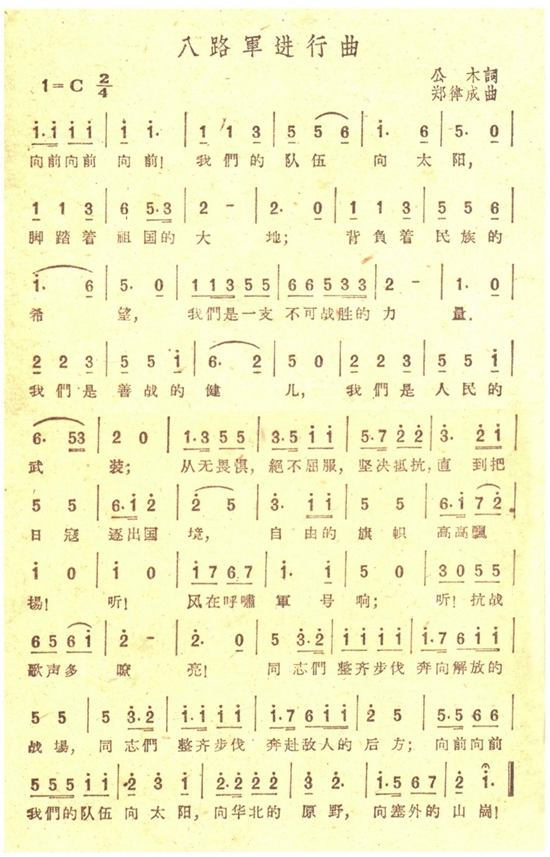 八路軍进行曲
1=C 2/4
公木詞
郑律成曲
向前向前 向前! 我們的 队伍 向 太阳,
脚踏着 祖国的 大 地; 背負着 民族的
希 望, 我們是一支 不可战胜的 力 量.
我們是 善战的 健 儿, 我們是 人民的
武 装; 从无畏惧, 絕不屈服, 坚决抵抗, 直到把
日寇 逐出国 境, 自由的 旗幟 高高飄
揚! 听! 风在呼嘯 軍号 响; 听! 抗战
歌声多 嘹 亮! 同志們 整齐步伐 奔向解放的
战場, 同志們 整齐步伐 奔赴敌人的 后方; 向前向前
我們的队伍 向太阳, 向华北的 原野, 向塞外的 山崗!